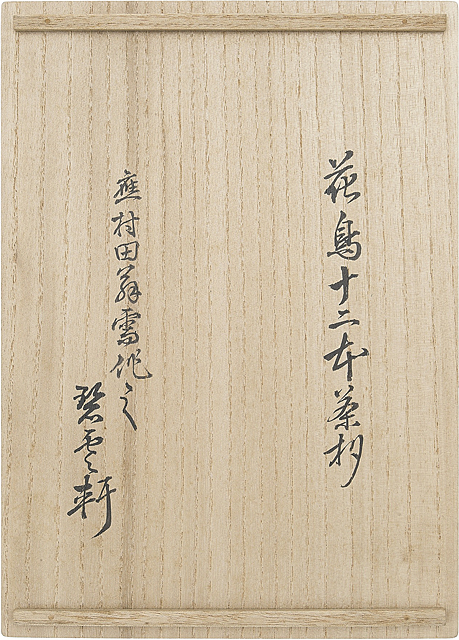 花鳥十二本茶杓
應村田翁需作之
碧雲軒